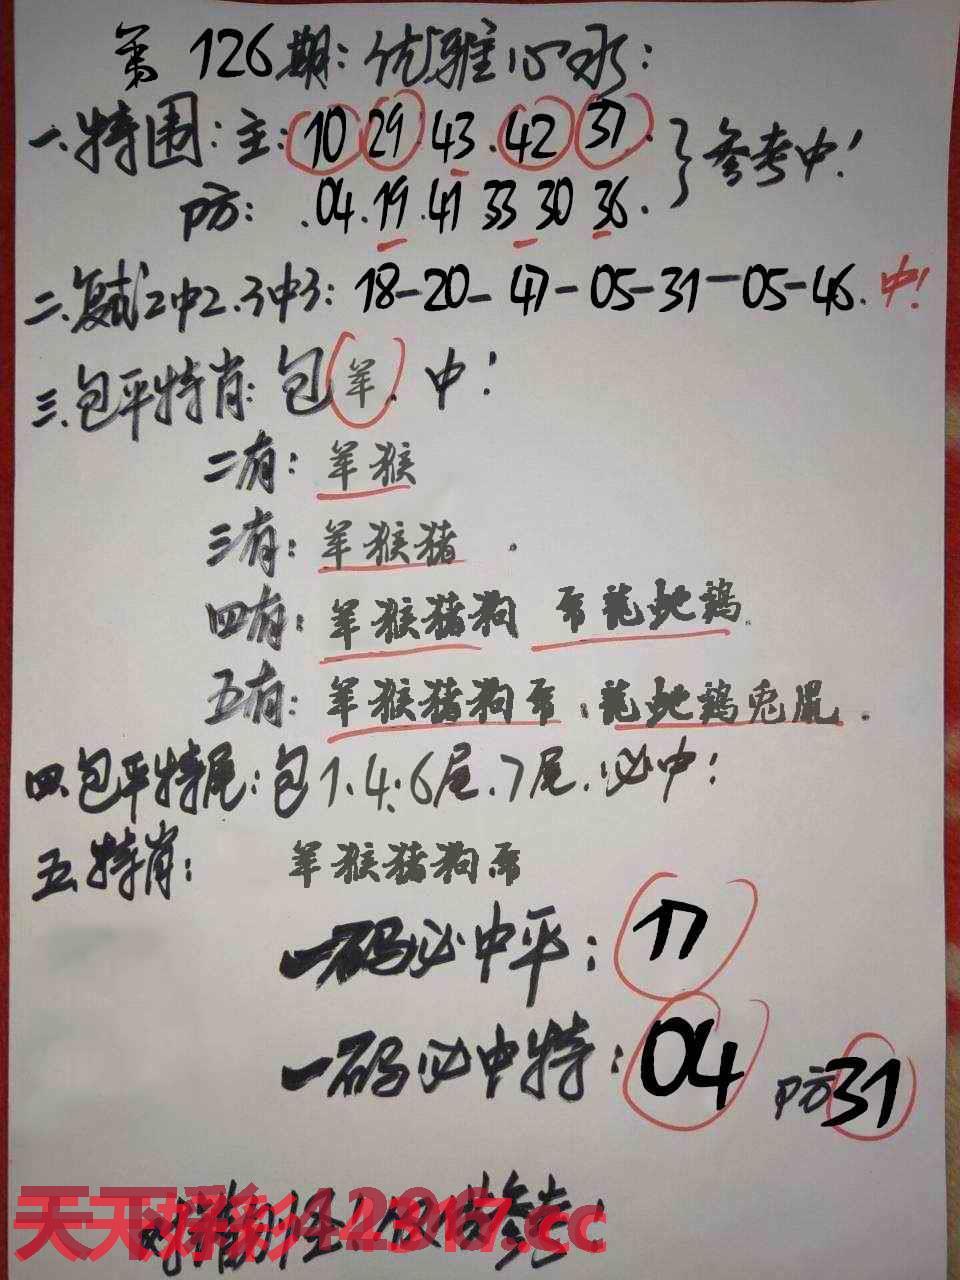 第126期:优雅心水:
一.特围:主:10 29.43.42 37.}参考中!
防:.04.19.41 33 30 36.
二.复式2中2.3中3:18-20-47-05-31-05-46.中!
三.包平特肖:包羊.中!
二有:羊猴
三有:羊猴猪.
四有:羊猴猪狗 龙蛇鸡.
五有:羊猴猪狗 龙蛇鸡兔鼠.
四.包平特尾:包1.4.6尾.7尾.必中!
五.特肖: 羊猴猪狗
一码必中平:17
一码必中特:04 防31
天天 12317.cc